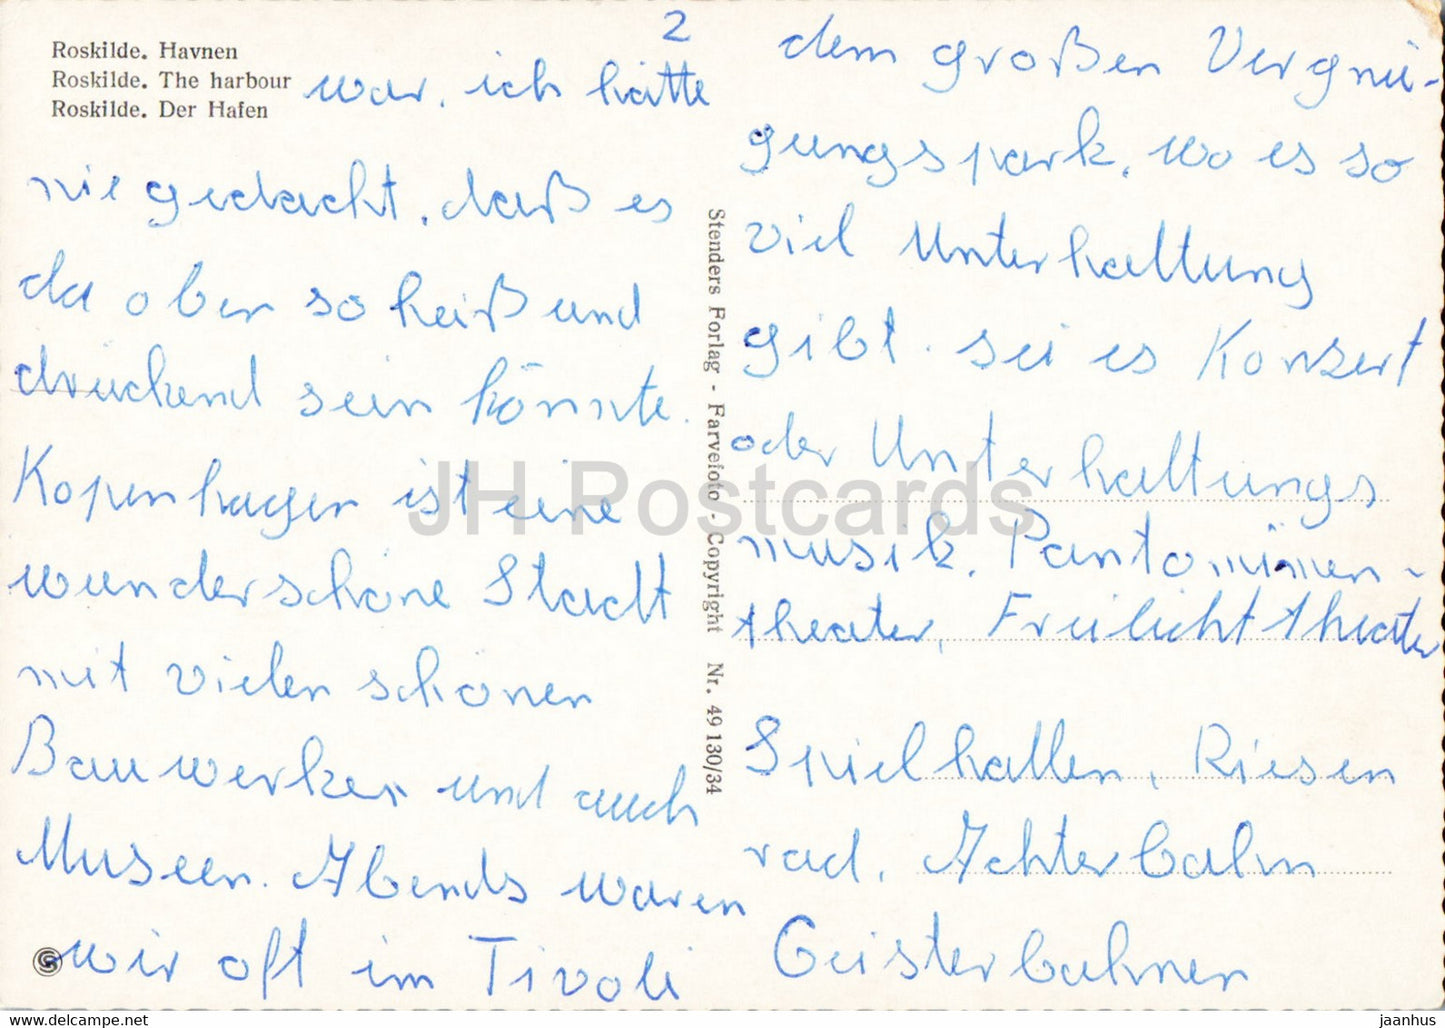 Roskilde. Havnen
Roskilde. The harbour
Roskilde. Der Hafen
2
war, ich hätte
nie gedacht, daß es
da oben so heiß und
drückend sein könnte.
Kopenhagen ist eine
wunderschöne Stadt
mit vielen schönen
Bauwerken und auch
Museen. Abends waren
wir oft im Tivoli
Stenders Forlag - Farvefoto - Copyright Nr. 49 130/34
dem großen Vergnü-
gungspark, wo es so
viel Unterhaltung
gibt. sei es Konzert
oder Unterhaltungs
musik, Pantomimen-
theater, Freilichttheater
Spielhallen, Riesen
rad, Achterbahn
Geisterbahnen
JH Postcards
jaanhus